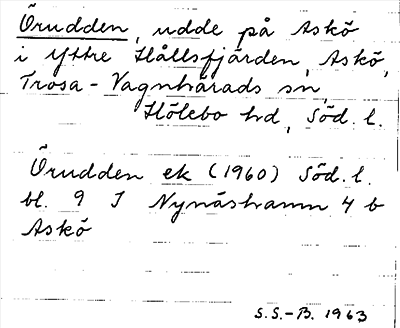 Örudden, udde på Askö
i Yttre Hållsfjärden, Askö,
Trosa-Vagnhärads sn,
Hölebo hd, Söd. l.
Örudden ek (1960) Söd. l.
bl. 9 I Nynäshamn 4 b
Askö
S.S.-B. 1963